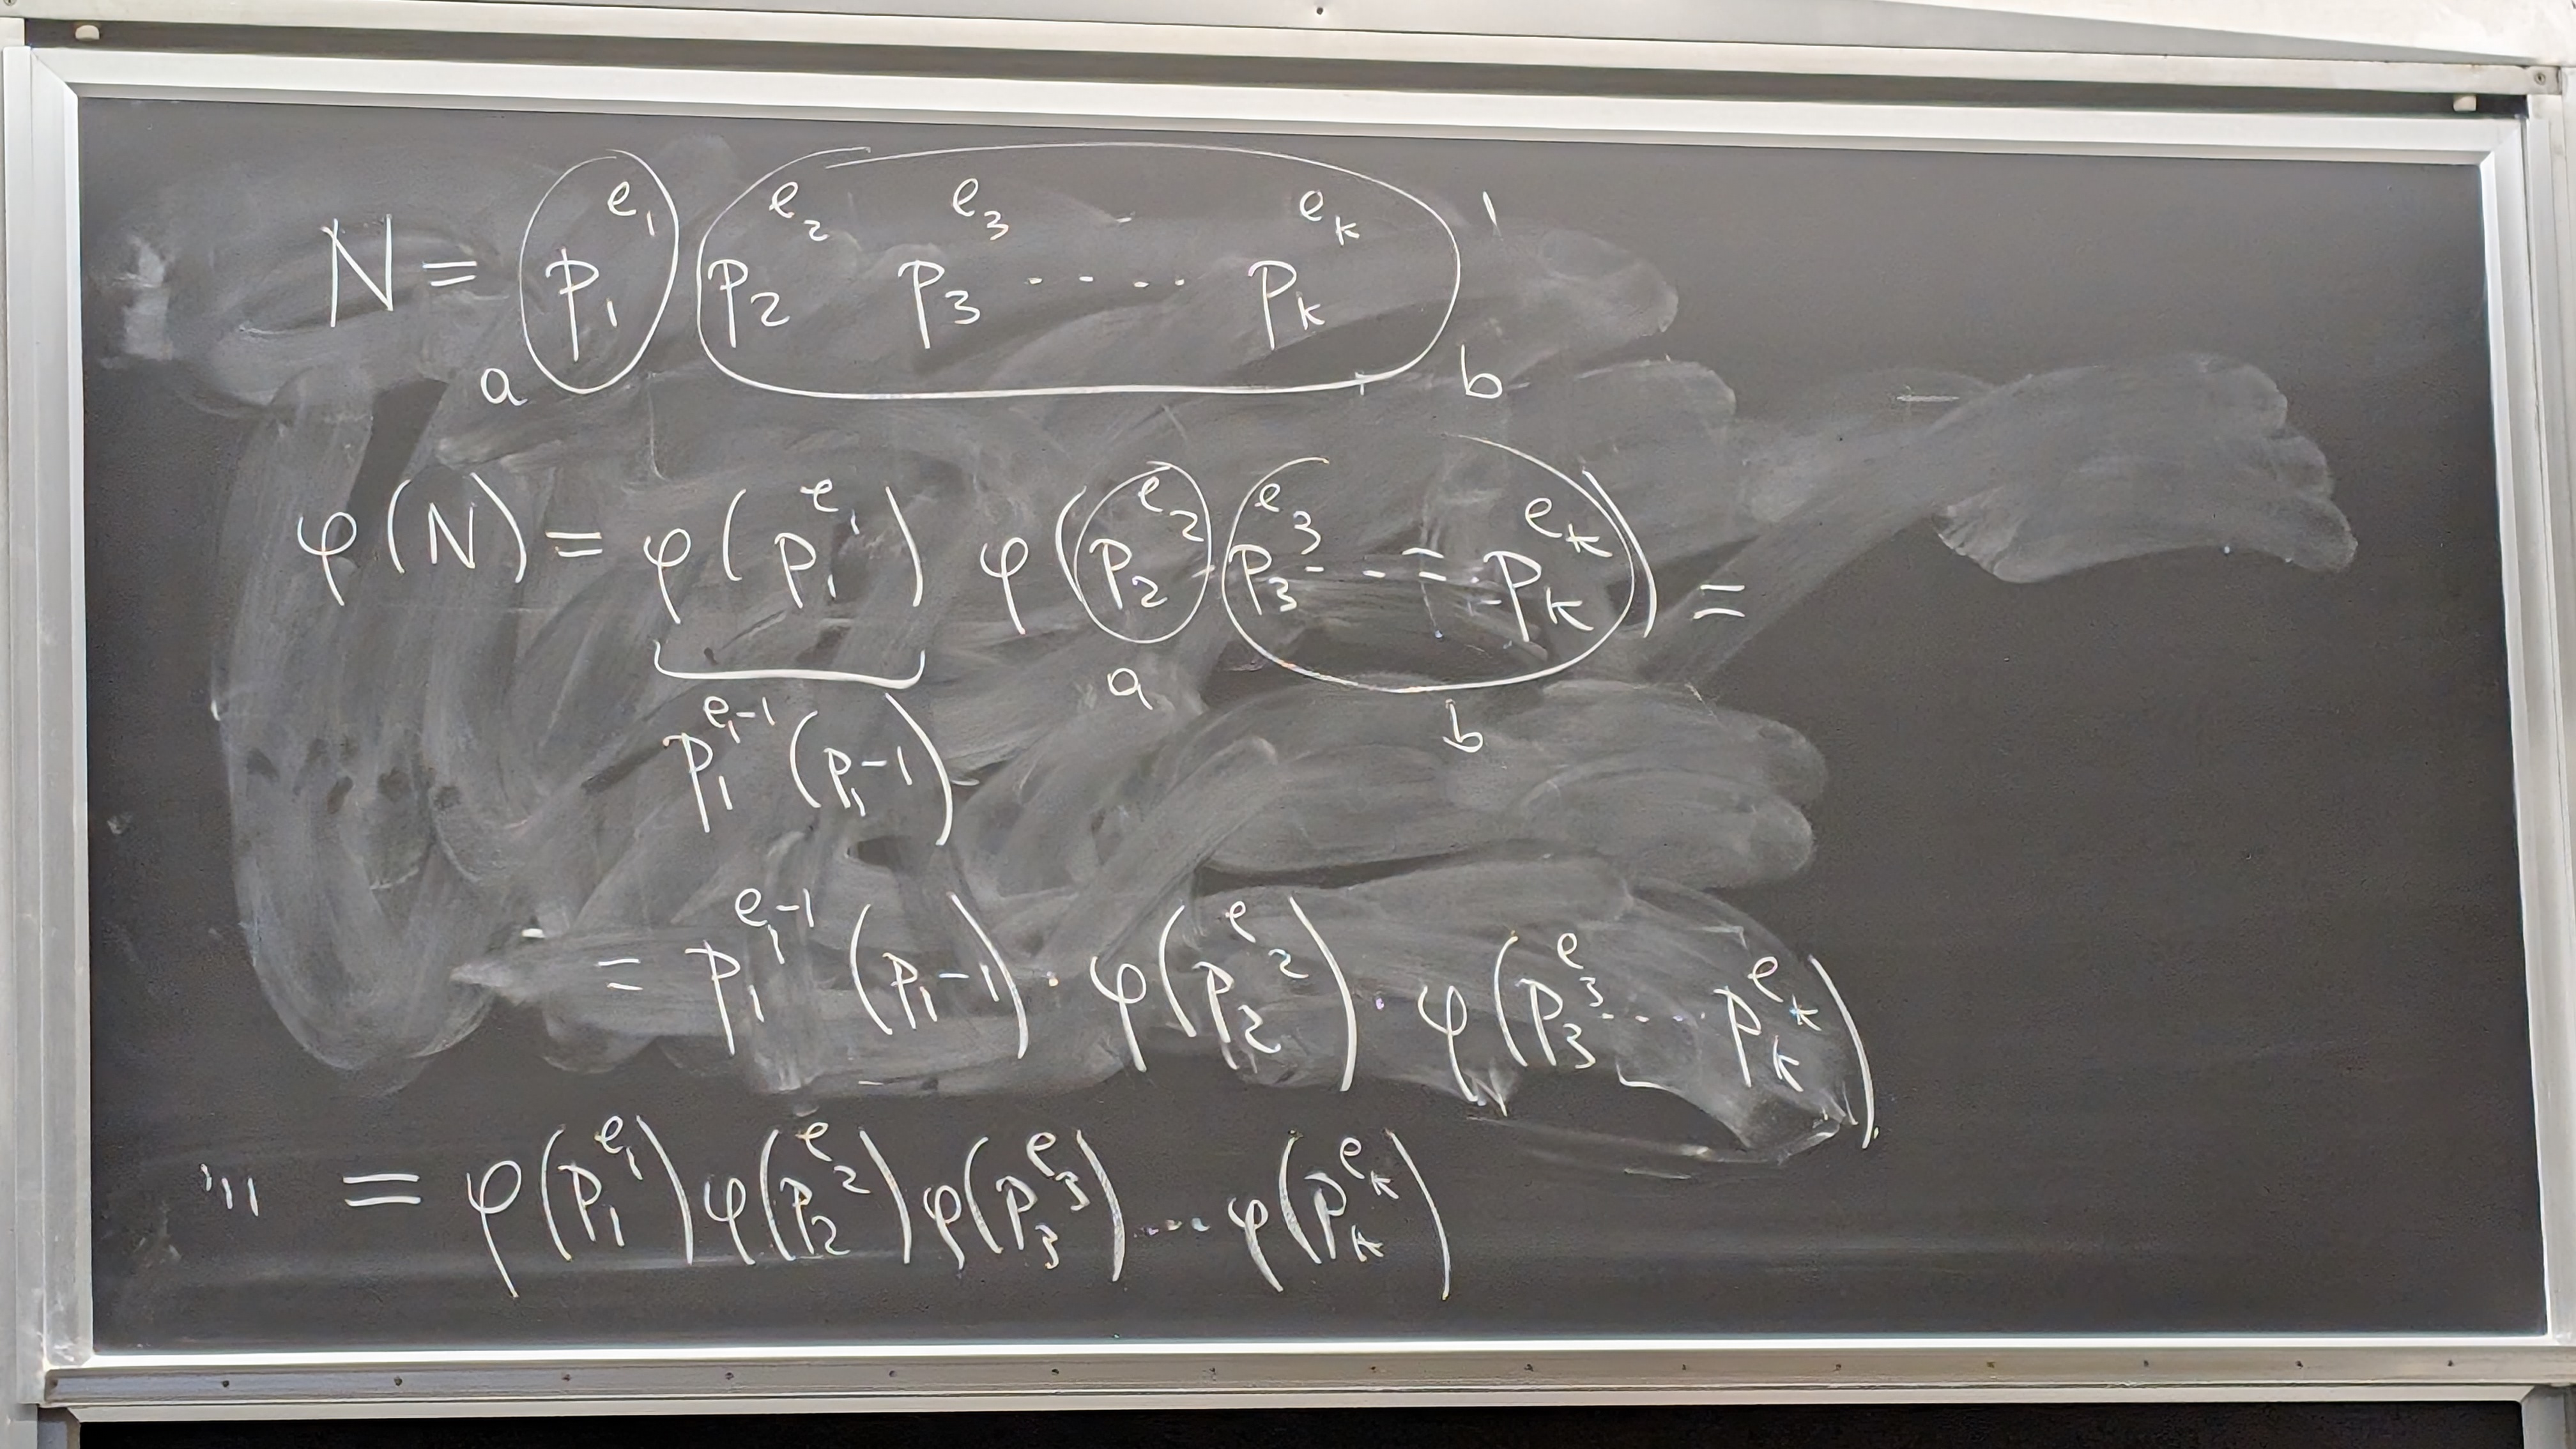 N = p₁^e₁ p₂^e₂ p₃^e₃ ..... pₖ^eₖ
a b
φ(N) = φ(p₁^e₁) φ(p₂^e₂ p₃^e₃ - - = - pₖ^eₖ) =
a b
p₁^(e₁-1) (p₁-1)
= p₁^(e₁-1) (p₁-1) · φ(p₂^e₂) · φ(p₃^e₃ .... pₖ^eₖ)
= φ(p₁^e₁) φ(p₂^e₂) φ(p₃^e₃) .... φ(pₖ^eₖ)